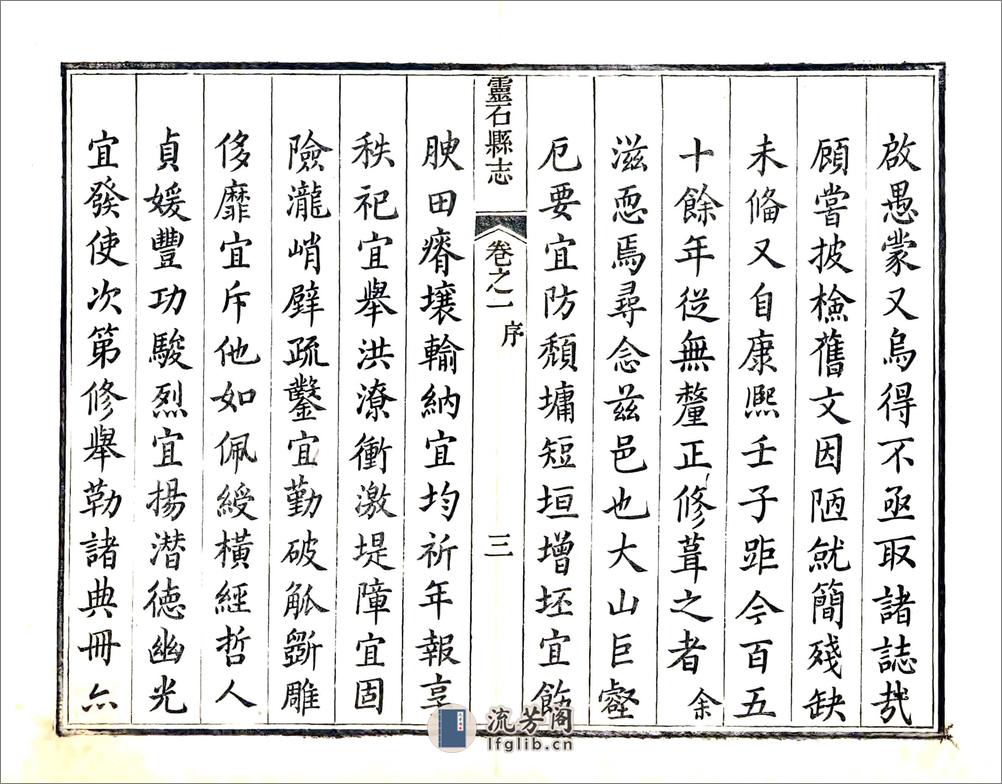 啟愚蒙又烏得不亟取諸誌哉
顧嘗披檢舊文因陋就簡殘缺
未俻又自康熙壬子距今百五
十餘年從無釐正修葺之者余
滋恧焉尋念茲邑也大山巨壑
厄要宜防頽墉短垣增坯宜飭
靈石縣志
卷之一
序
三
腴田瘠壤輸納宜均祈年報享
秩祀宜舉洪潦衝激堤障宜固
險瀧峭壁疏鑿宜勤破觚斵雕
侈靡宜斥他如佩綬橫經哲人
貞媛豐功駿烈宜揚潛德幽光
宜發使次第修舉勒諸典冊亦
流芳阁
lfglib.cn